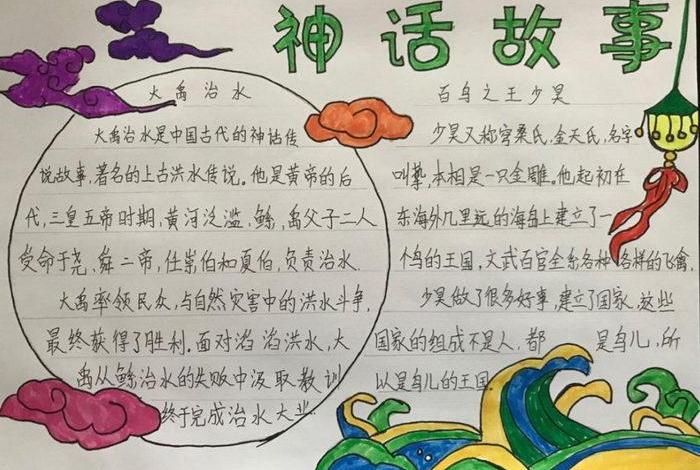 神话故事
大禹治水
大禹治水是中国古代的神话传
说故事，著名的上古洪水传说。他是黄帝的后
代，三皇五帝时期，黄河泛滥，鲧，禹父子二人
受命于尧、舜二帝，任崇伯和夏伯，负责治水.
大禹率领民众，与自然灾害中的洪水斗争，
最终获得了胜利.面对滔滔洪水，大
禹从鲧治水的失败中汲取教训
终于完成治水大业.
百鸟之王少昊
少昊又称穷桑氏，金天氏，名字
叫挚，本相是一只金雕。他起初在
东海外几里远的海岛上建立了一
个鸟的王国，文武百官全系各种各样的飞禽.
少昊做了很多好事，建立了国家，这些
国家的组成不是人，都是鸟儿，所
以是鸟儿的王国